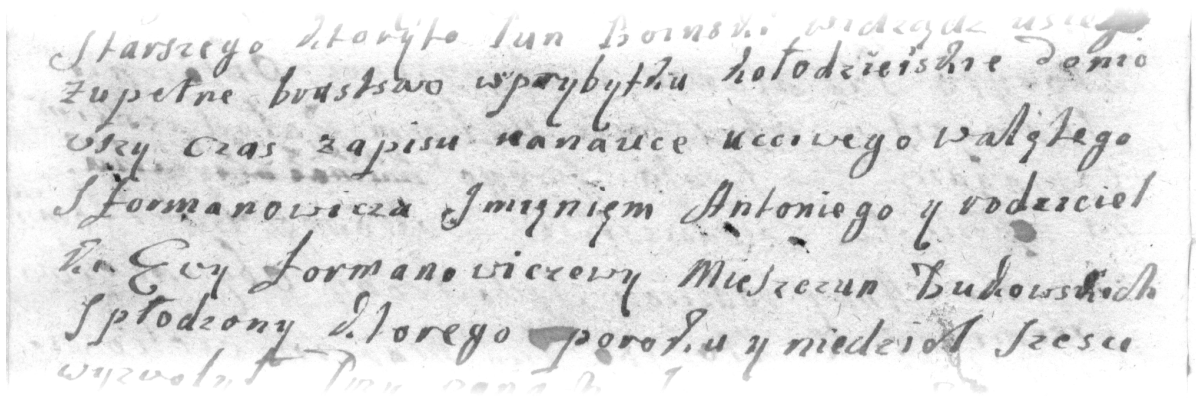 Starszego ktoryto Pan Boinski widządz
zupełne braststwo wprzybytku kołodzieiskie donio
wszy czas zapisu nanauce ucciwego wałęTego
S Formanowicza Imięnięm Antoniego y rodziciel
ki Ewy Formanowiczewy Mieszczan Żukowskich
Spłodzony ktorego poroku y niedziel szescu